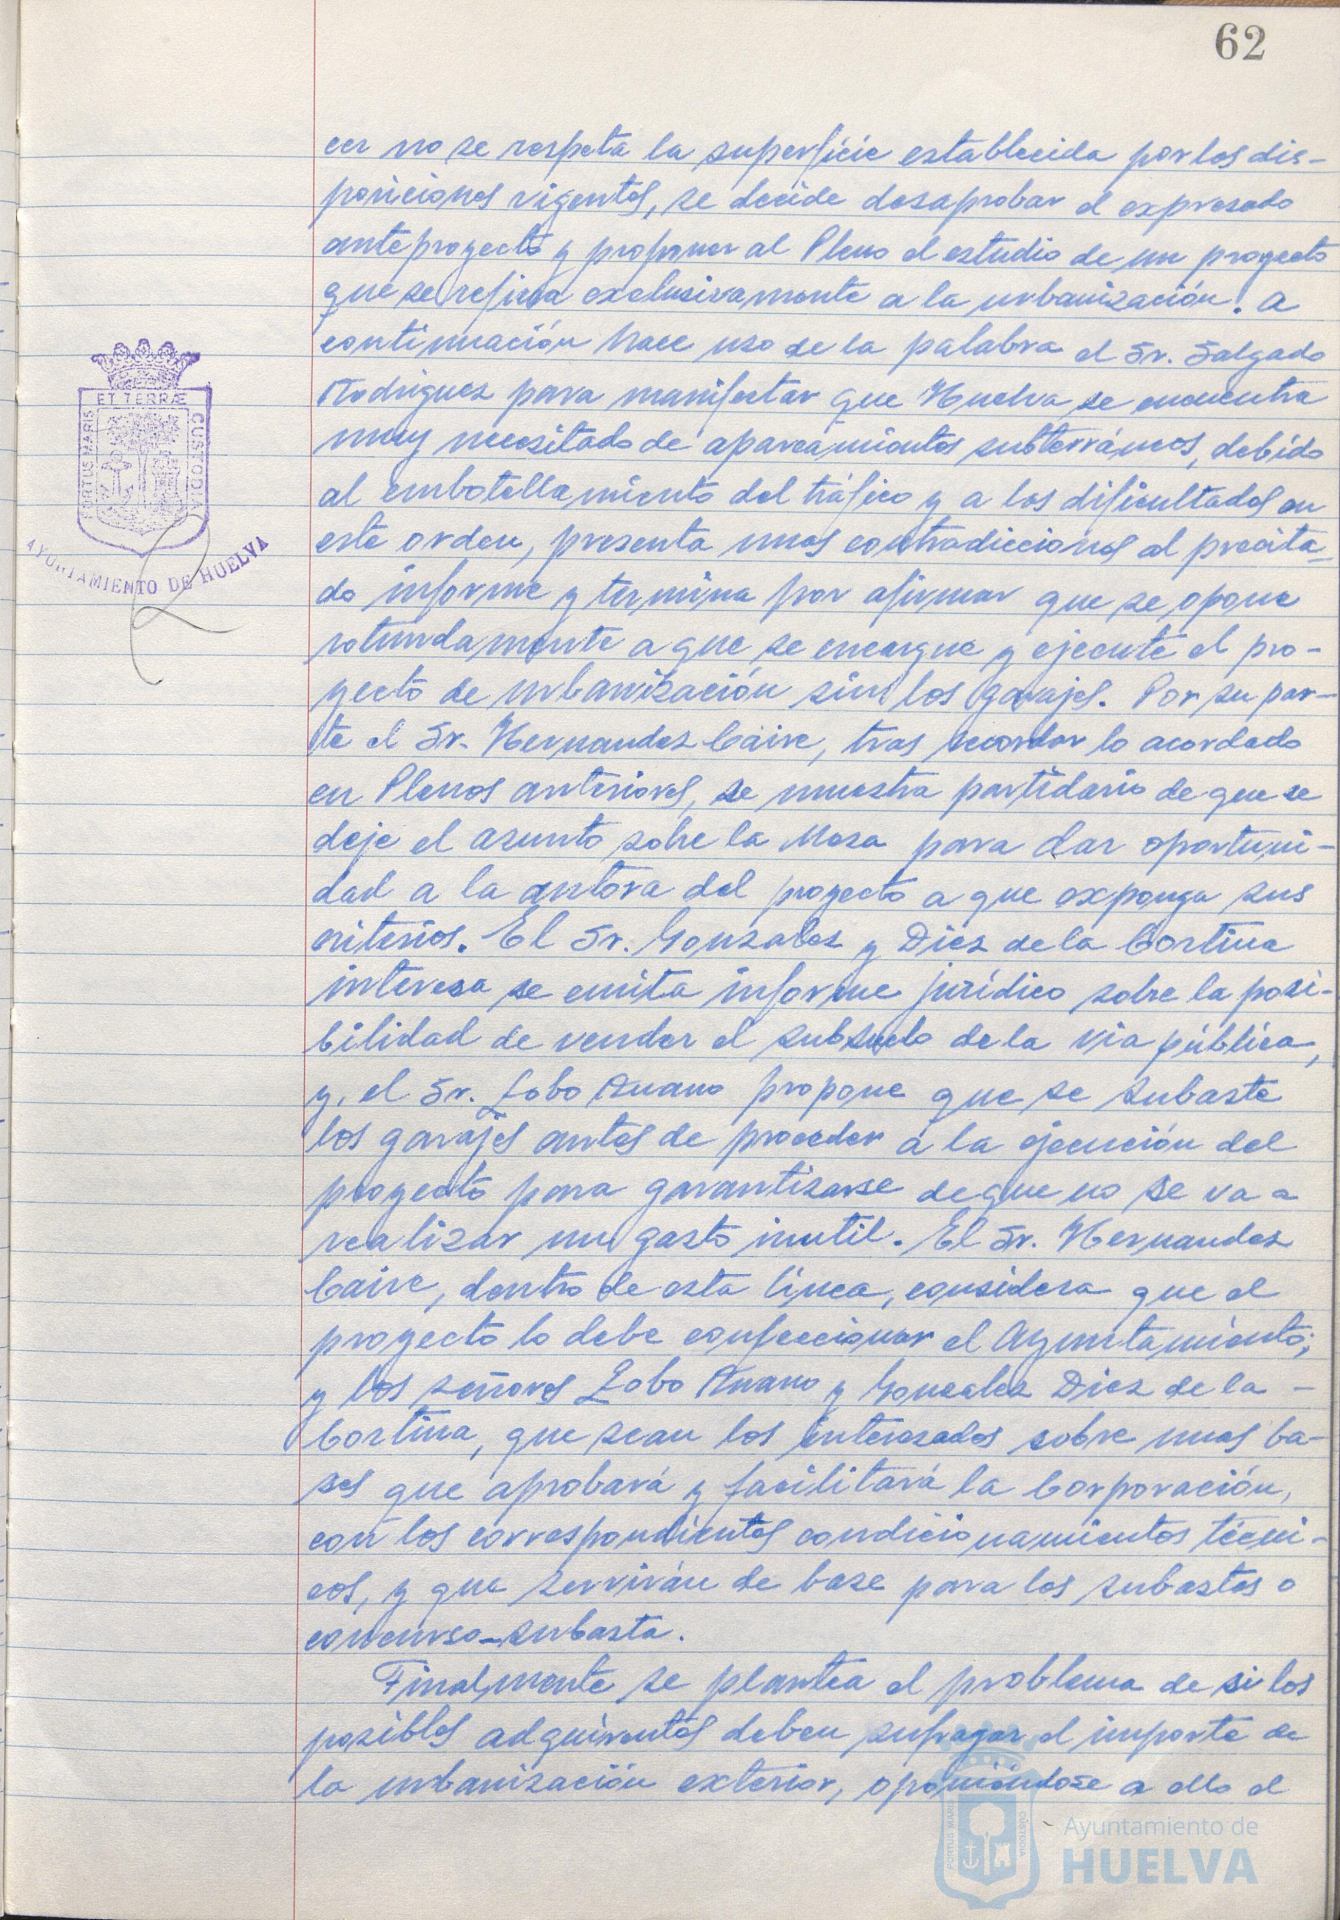 62
cer no se respeta la superficie establecida por las dis-
posiciones vigentes, se decide desaprobar el expresado
anteproyecto y proponer al Pleno el estudio de un proyecto
que se refiera exclusivamente a la urbanización. A
continuación hace uso de la palabra el Sr. Salgado
Rodriguez para manifestar que Huelva se encuentra
muy necesitado de aparcamientos subterráneos, debido
al embotellamiento del tráfico y a las dificultades en
este orden, presenta unas contradicciones al precita-
do informe y termina por afirmar que se opone
rotundamente a que se encargue y ejecute el pro-
yecto de urbanización sin los garajes. Por su par-
te el Sr. Hernandez Caire, tras recordar lo acordado
en Plenos anteriores, se muestra partidario de que se
deje el asunto sobre la Mesa para dar oportuni-
dad a la autora del proyecto a que exponga sus
criterios. El Sr. Gonzalez y Diez de la Cortina
interesa se emita informe jurídico sobre la posi-
bilidad de vender el subsuelo de la via pública,
y, el Sr. Lobo propone que se subaste
los garajes antes de proceder a la ejecución del
proyecto para garantizarse de que no se va a
realizar un gasto inutil. El Sr. Hernandez
Caire, dentro de esta línea, considera que el
proyecto lo debe confeccionar el Ayuntamiento;
y los señores Lobo y Gonzalez Diez de la -
Cortina, que sean los interesados sobre unas ba-
ses que aprobará y facilitará la Corporación,
con los correspondientes condicionamientos técni-
cos, y que servirán de base para las subastas o
concurso-subasta.
Finalmente se plantea el problema de si los
posibles adquirentes deben sufragar el importe de
la urbanización exterior, oponiéndose a ello el
PORTUS MARIS
ET TERRÆ
CUSTODIA
AYUNTAMIENTO DE HUELVA
PORTUS MARIS
CUSTODIA
Ayuntamiento de
HUELVA